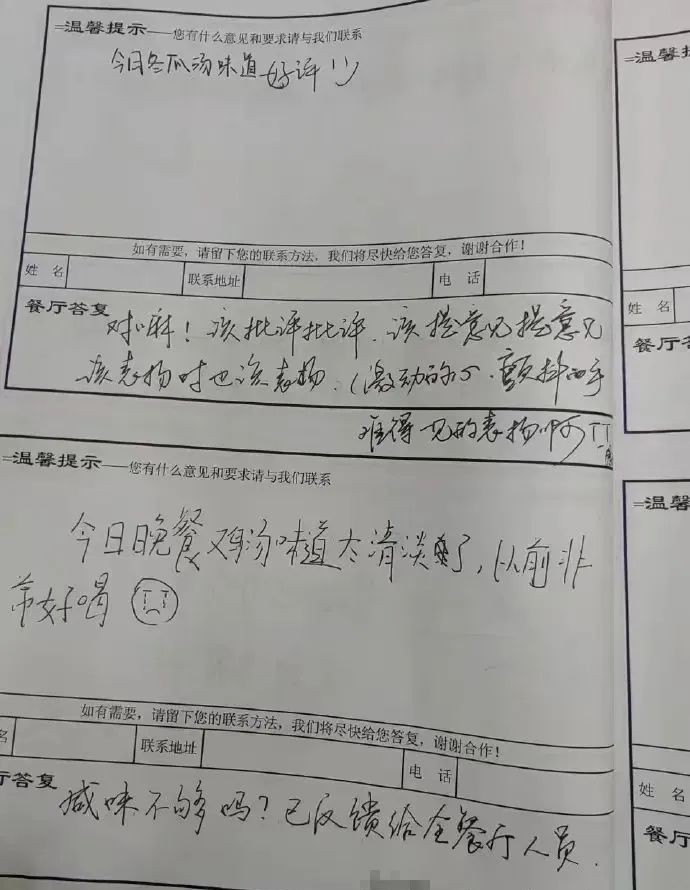 =温馨提示——您有什么意见和要求请与我们联系
今日冬瓜汤味道好评!!
如有需要，请留下您的联系方法，我们将尽快给您答复，谢谢合作！
姓 名 联系地址 电 话
餐厅答复
对嘛！该批评批评．该提意见提意见
该表扬时也该表扬．(激动的心．颤抖的手
难得见的表扬啊TT
=温馨提示——您有什么意见和要求请与我们联系
今日晚餐鸡汤味道太清淡了，以前非
常好喝
如有需要，请留下您的联系方法，我们将尽快给您答复，谢谢合作！
名 联系地址 电 话
厅答复
咸味不够吗？已反馈给全餐厅人员．
=温馨提
姓 名
餐厅答
=温馨
姓 名
餐厅